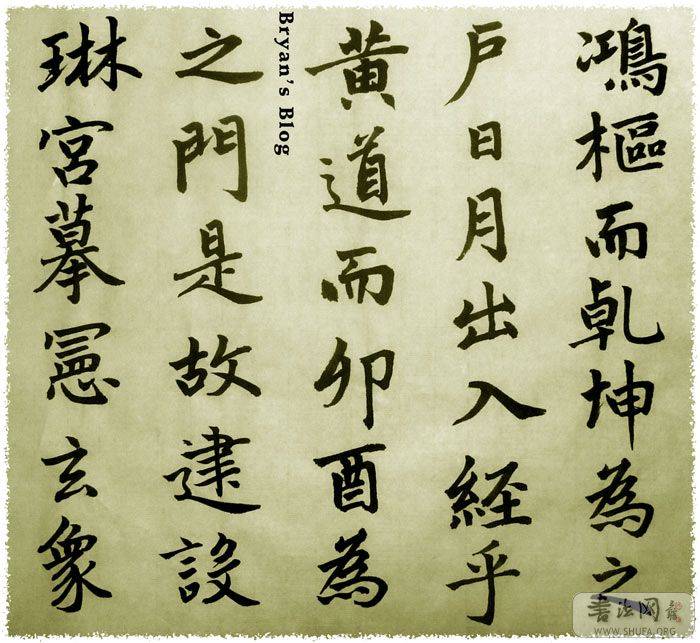 鴻樞而乹坤為之
户日月出入經乎
黄道而卯酉為
Bryan's Blog
之門是故建設
琳宮摹憲玄象
書法网
WWW.SHUFA.ORG